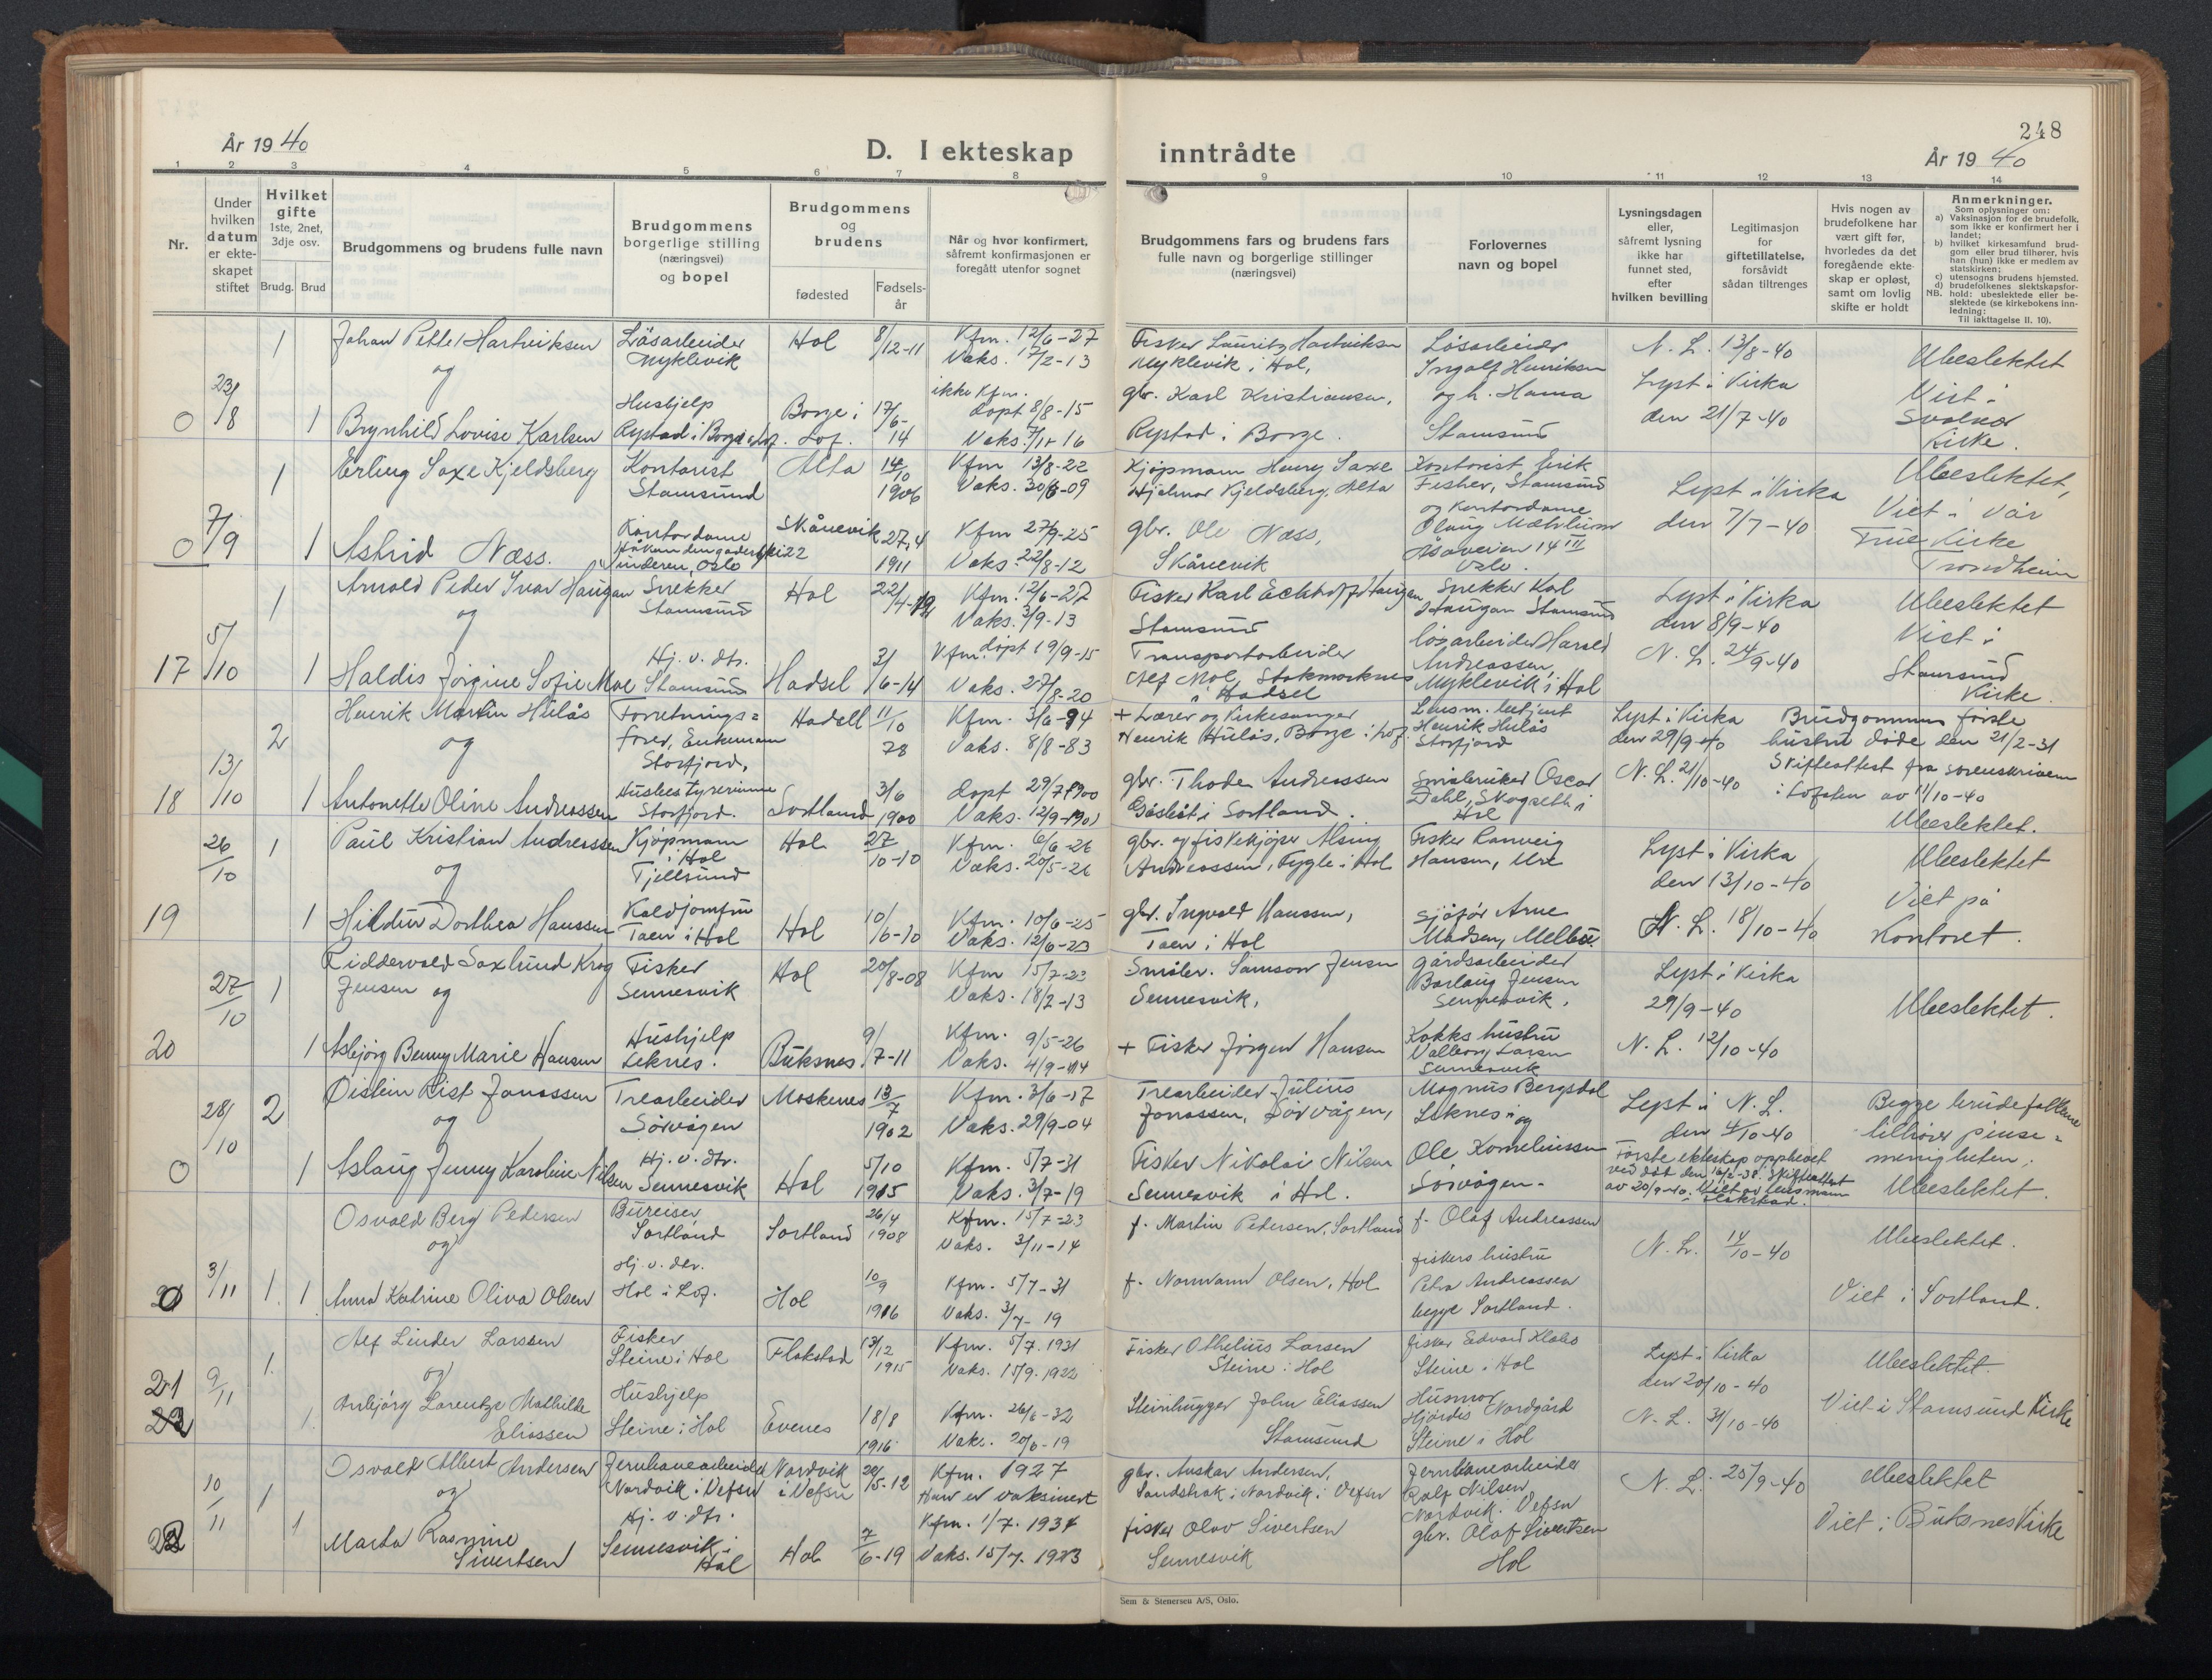 248
År 1940
D. I ekteskap inntrådte
År 1940
1 2 3 4 5 6 7 8 9 10 11 12 13 14
Nr.
Under hvilken datum er ekteskapet stiftet
Hvilket gifte 1ste, 2net, 3dje osv.
Brudg. Brud
Brudgommens og brudens fulle navn
Brudgommens borgerlige stilling (næringsvei) og bopel
Brudgommens og brudens
fødested
Fødsels-år
Når og hvor konfirmert, såfremt konfirmasjonen er foregått utenfor sognet
Brudgommens fars og brudens fars fulle navn og borgerlige stillinger (næringsvei)
Forlovernes navn og bopel
Lysningsdagen eller, såfremt lysning ikke har funnet sted, efter hvilken bevilling
Legitimasjon for giftetillatelse, forsåvidt sådan tiltrenges
Hvis nogen av brudefolkene har vært gift før, hvorledes da det foregående ekteskap er opløst, samt om lovlig skifte er holdt
Anmerkninger.
Som oplysninger om:
a) Vaksinasjon for de brudefolk, som ikke er konfirmert her i landet;
b) hvilket kirkesamfund brudgom eller brud tilhører, hvis han (hun) ikke er medlem av statskirken;
c) utensogns brudens hjemsted.
d) brudefolkenes slektskapsforhold: ubeslektede eller beslektede (se kirkebokens innledning:
NB.
Til iakttagelse II. 10).
0 23/8 1 Johan Petter Hartviksen
og
1 Brynhild Lovise Karlsen
Løsarbeider
Myklevik
Hushjelp
Rystad i Borge i Lof.
Hol 8/12-11
Borge i Lof. 17/6-14
Kfm. 12/6-27
Vaks. 17/2-13
ikke Kfm.
døpt 8/8-15
Vaks. 7/11-16
Fisker Lauritz Hartviksen
Myklevik i Hol,
gbr. Karl Kristiansen,
Rystad i Borge.
Løsarbeider
Ingolf Henriksen
og h. Hanna
Stamsund
N. L. 13/8-40
Lyst i Kirka
den 21/7-40
Ubeslektet
Viet i
Svolvær
Kirke.
0 7/9 1 Erling Saxe Kjeldsberg
1 Astrid Næss.
Kontorist
Stamsund
Kontordame
Håkon den godes vei 22
Vinderen, Oslo
Alta 14/10 1906
Skånevik 27/4 1911
Kfm 13/8-22
Vaks. 30/8-09
Kfm 27/9-25
Vaks. 22/8-12
Kjøpmann Henry Saxe
Hjelmar Kjeldsberg, Alta
gbr. Ole Næss,
Skånevik
Kontorist Erik
Fisher, Stamsund
og Kontordame
Olaug Mæhlum
Åsaveien 14 III
Oslo.
Lyst i Kirka
den 7/7-40
Ubeslektet,
Viet i Vår
Frue Kirke
Trondheim
17 5/10 1 Arnold Peder Ivar Haugan
og
1 Haldis Jørgine Sofie Moe
Snekker
Stamsund
Hj. v. dtr.
Stamsund
Hol 22/4-12
Hadsel 3/6-14
Kfm. 12/6-27
Vaks. 3/9-13
Kfm. døpt 19/9-15
Vaks. 27/8-20
Fisker Karl Echhoff Haugan
Stamsund
Transportarbeider
Alf Moe, Stokmarknes
i Hadsel
Snekker Karl
Haugan Stamsund
løsarbeider Harald
Andreassen,
Myklevik i Hol
Lyst i Kirka
den 8/9-40
N. L. 24/9-40
Ubeslektet
Viet i
Stamsund
Kirke.
18 13/10 2 Henrik Martin Hulås
og
1 Antonette Oline Andreassen
Forretnings-
fører, Enkemann
Storfjord,
Husbestyrerinne
Storfjord.
Hadsel 11/10 78
Sortland 3/6 1900
Kfm. 3/6-94
Vaks. 8/8-83
døpt 29/7-1900
Vaks. 12/9-1901
+ Lærer og Kirkesanger
Henrik Hulås, Borge i Lof.
gbr. Thode Andreassen
i Sortland.
Lensm. betjent
Henrik Hulås
Storfjord
Småbruker Oscar
Dahl, Skogseth i
Hol
Lyst i Kirka
den 29/9-40
N. L. 21/10-40
Brudgommens første
hustru døde den 21/2-31
Skifteattest fra Sorenskriveren
i Lofoten av 11/10-40
Ubeslektet.
19 26/10 1 Paul Kristian Andreassen
og
1 Hildur Dorthea Hanssen
Kjøpmann
i Hol
Tjellsund
Koldjomfru
Taen i Hol
Hol 27/10-10
Hol 10/6-10
Kfm. 6/6-26
Vaks. 20/5-26
Kfm. 10/6-25
Vaks. 12/6-23
gbr. og fiskekjøper Alsing
Andreassen, Bygle i Hol
gbr. Ingvald Hanssen,
Taen i Hol
Fisker Ranveig
Hansen, Ure
Sjåfør Arne
Madsen, Melbu
Lyst i Kirka
den 13/10-40
N. L. 18/10-40
Ubeslektet
Viet på
Kontoret.
20 27/10 1 Riddervold Saxlund Krog
Jensen og
1 Asbjørg Benny Marie Hansen
Fisker
Sennesvik
Hushjelp
Leknes.
Hol 20/8-08
Buksnes 9/7-11
Kfm 15/7-23
Vaks. 18/2-13
Kfm. 9/5-26
Vaks. 4/9-14
Småbr. Samson Jensen
Sennesvik,
+ Fisker Jørgen Hansen
gårdsarbeider
Borlaug Jensen
Sennesvik,
Kokks hustru
Valborg Larsen
Sennesvik
Lyst i Kirka
29/9-40
N. L. 12/10-40
Ubeslektet.
0 28/10 2 Øistein Rist Jonassen
og
1 Aslaug Jenny Karoline Nilsen
Trearbeider
Sørvågen
Hj. v. dtr.
Sennesvik
Moskenes 13/7 1902
Hol 5/10 1915
Kfm. 3/6-17
Vaks. 29/9-04
Kfm. 5/7-31
Vaks. 3/7-19
Trearbeider Julius
Jonassen, Sørvågen,
Fisker Nikolai Nilsen
Sennesvik i Hol.
Magnus Bergsdal
Leknes og
Ole Korneliussen
Sørvågen.
Lyst i N. L.
den 4/10-40
Første ekteskap opphevet
ved død den 16/2-38. Skifteattest
av 20/9-40. Viet av lensmann
i Flakstad.
Begge brudefolkene
tilhører pinse-
menigheten.
Ubeslektet.
20 3/11 1 1 Osvald Berg Pedersen
og
Anna Katrine Oliva Olsen
Bureiser
Sortland
Hj. v. der.
Hol i Lof.
Sortland 26/4 1908
Hol 10/9 1916
Kfm. 15/7-23
Vaks. 3/11-14
Kfm. 5/7-31
Vaks. 3/7-19
f. Martin Pedersen, Sortland
f. Normann Olsen, Hol
f. Olaf Andreassen
fiskers hustru
Petra Andreassen
begge Sortland.
N. L. 14/10-40
Ubeslektet.
Viet i Sortland.
21 9/11 1. Alf Linder Larssen
og
1. Anbjørg Lorentze Mathilde
Eliassen
Fisker
Steine i Hol
Hushjelp
Steine i Hol
Flakstad 13/12 1915
Evenes 18/8 1916
Kfm. 5/7. 1931
Vaks. 15/9. 1922
Kfm. 26/6-32
Vaks. 20/6-19
Fisker Othelius Larsen
Steine i Hol
Steinhugger John Eliassen
Stamsund
fisker Edvard Klabo
Steine i Hol
Husmor
Hjørdis Nordgård
Steine i Hol
Lyst i Kirka
den 20/10-40
N. L. 31/10-40
Ubeslektet.
Viet i Stamsund Kirke
22 10/11 1 Osvald Albert Andersen
og
1 Marta Rasmine
Sivertsen
Jernbanearbeider
Nordvik i Vefsn
Hj. v. dtr.
Sennesvik i
Hol
Nordvik i Vefsn 20/5-12
Hol 7/6-19
Kfm. 1927
Han er vaksinert
Kfm. 1/7. 1934
Vaks. 15/7. 1923
gbr. Anskar Andersen,
Sandstrak i Nordvik i Vefsn
fisker Olav Sivertsen
Sennesvik
Jernbanearbeider
Rolf Nilsen
Nordvik i Vefsn
gbr. Olaf Sivertsen
Hol
N. L. 25/9-40
Ubeslektet
Viet i Buksnes Kirke
Sem & Stenersen A/S, Oslo.